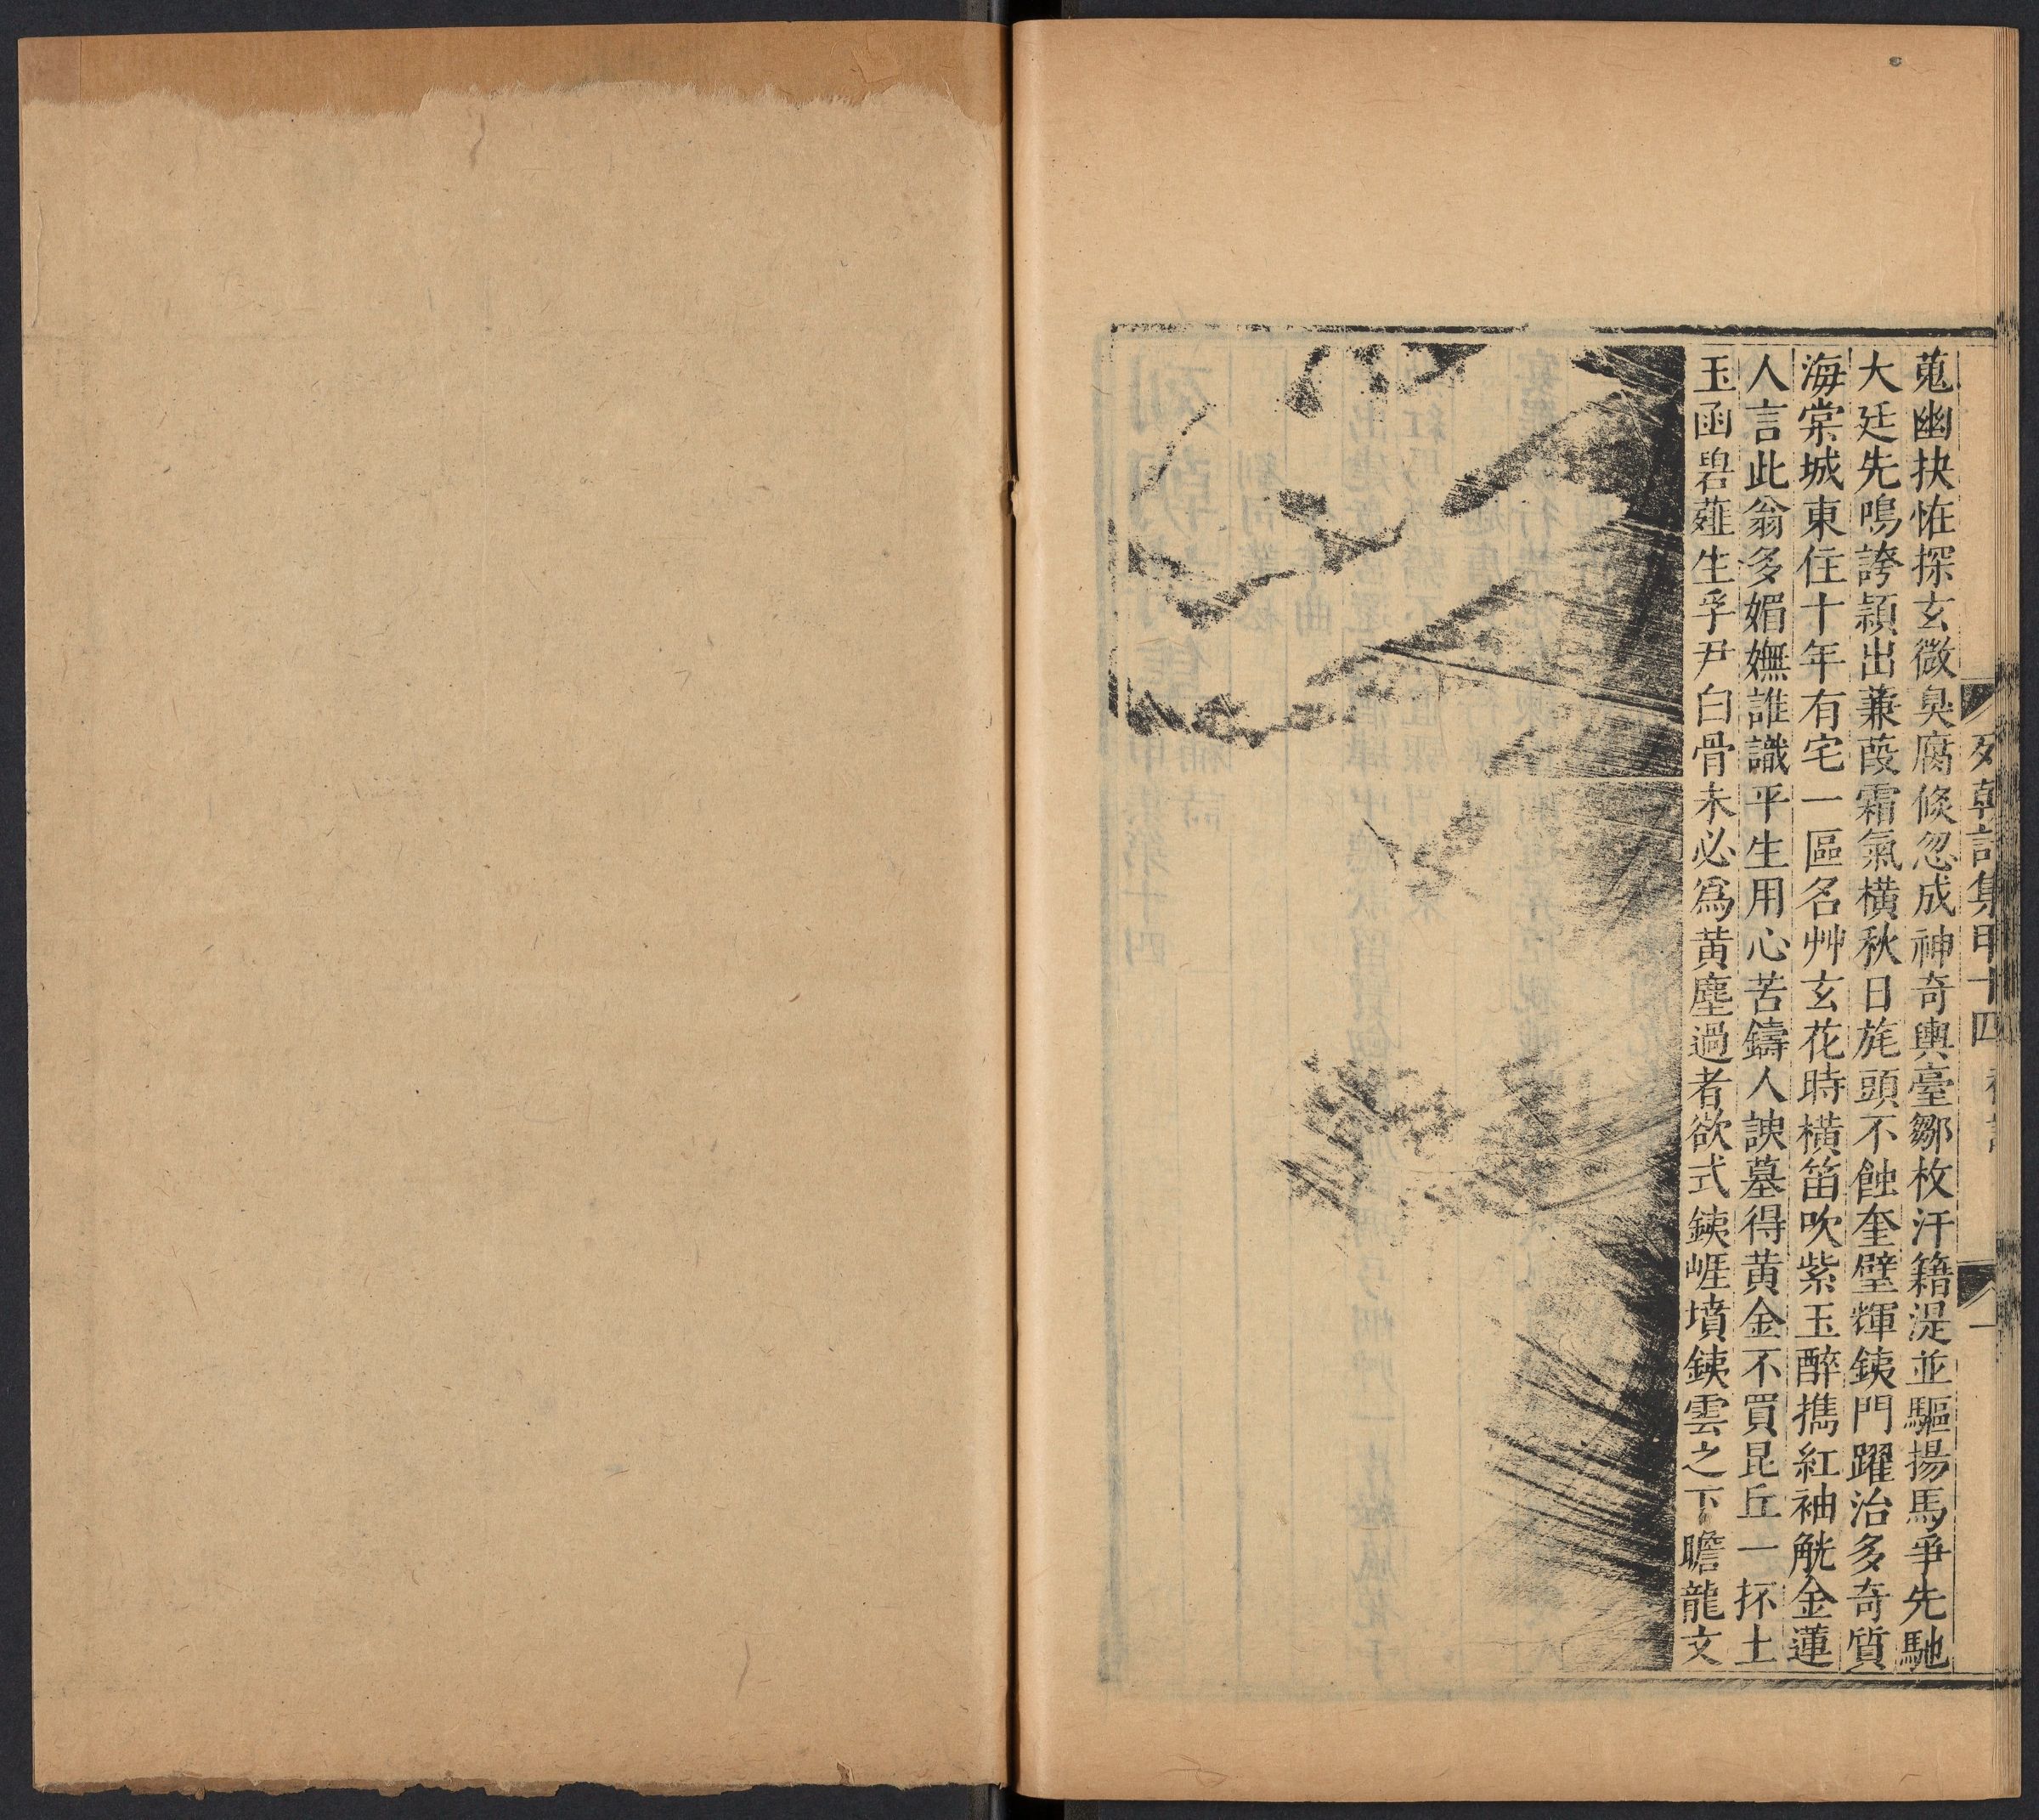 列朝詩集甲十四 補詩 一
蒐幽抉恠探玄微臭腐倐忽成神奇輿臺鄒枚汗籍湜並驅揚馬爭先馳
大廷先鳴誇頴出蒹葭霜氣橫秋日旄頭不蝕奎璧輝鐵門躍治多奇質
海棠城東住十年有宅一區名艸玄花時橫笛吹紫玉醉擕紅袖觥金蓮
人言此翁多媚嫵誰識平生用心苦鑄人諛墓得黃金不買昆丘一抔土
玉函碧薤生孚尹白骨未必爲黃塵過者欲式鐵崕墳鐵雲之下瞻龍文